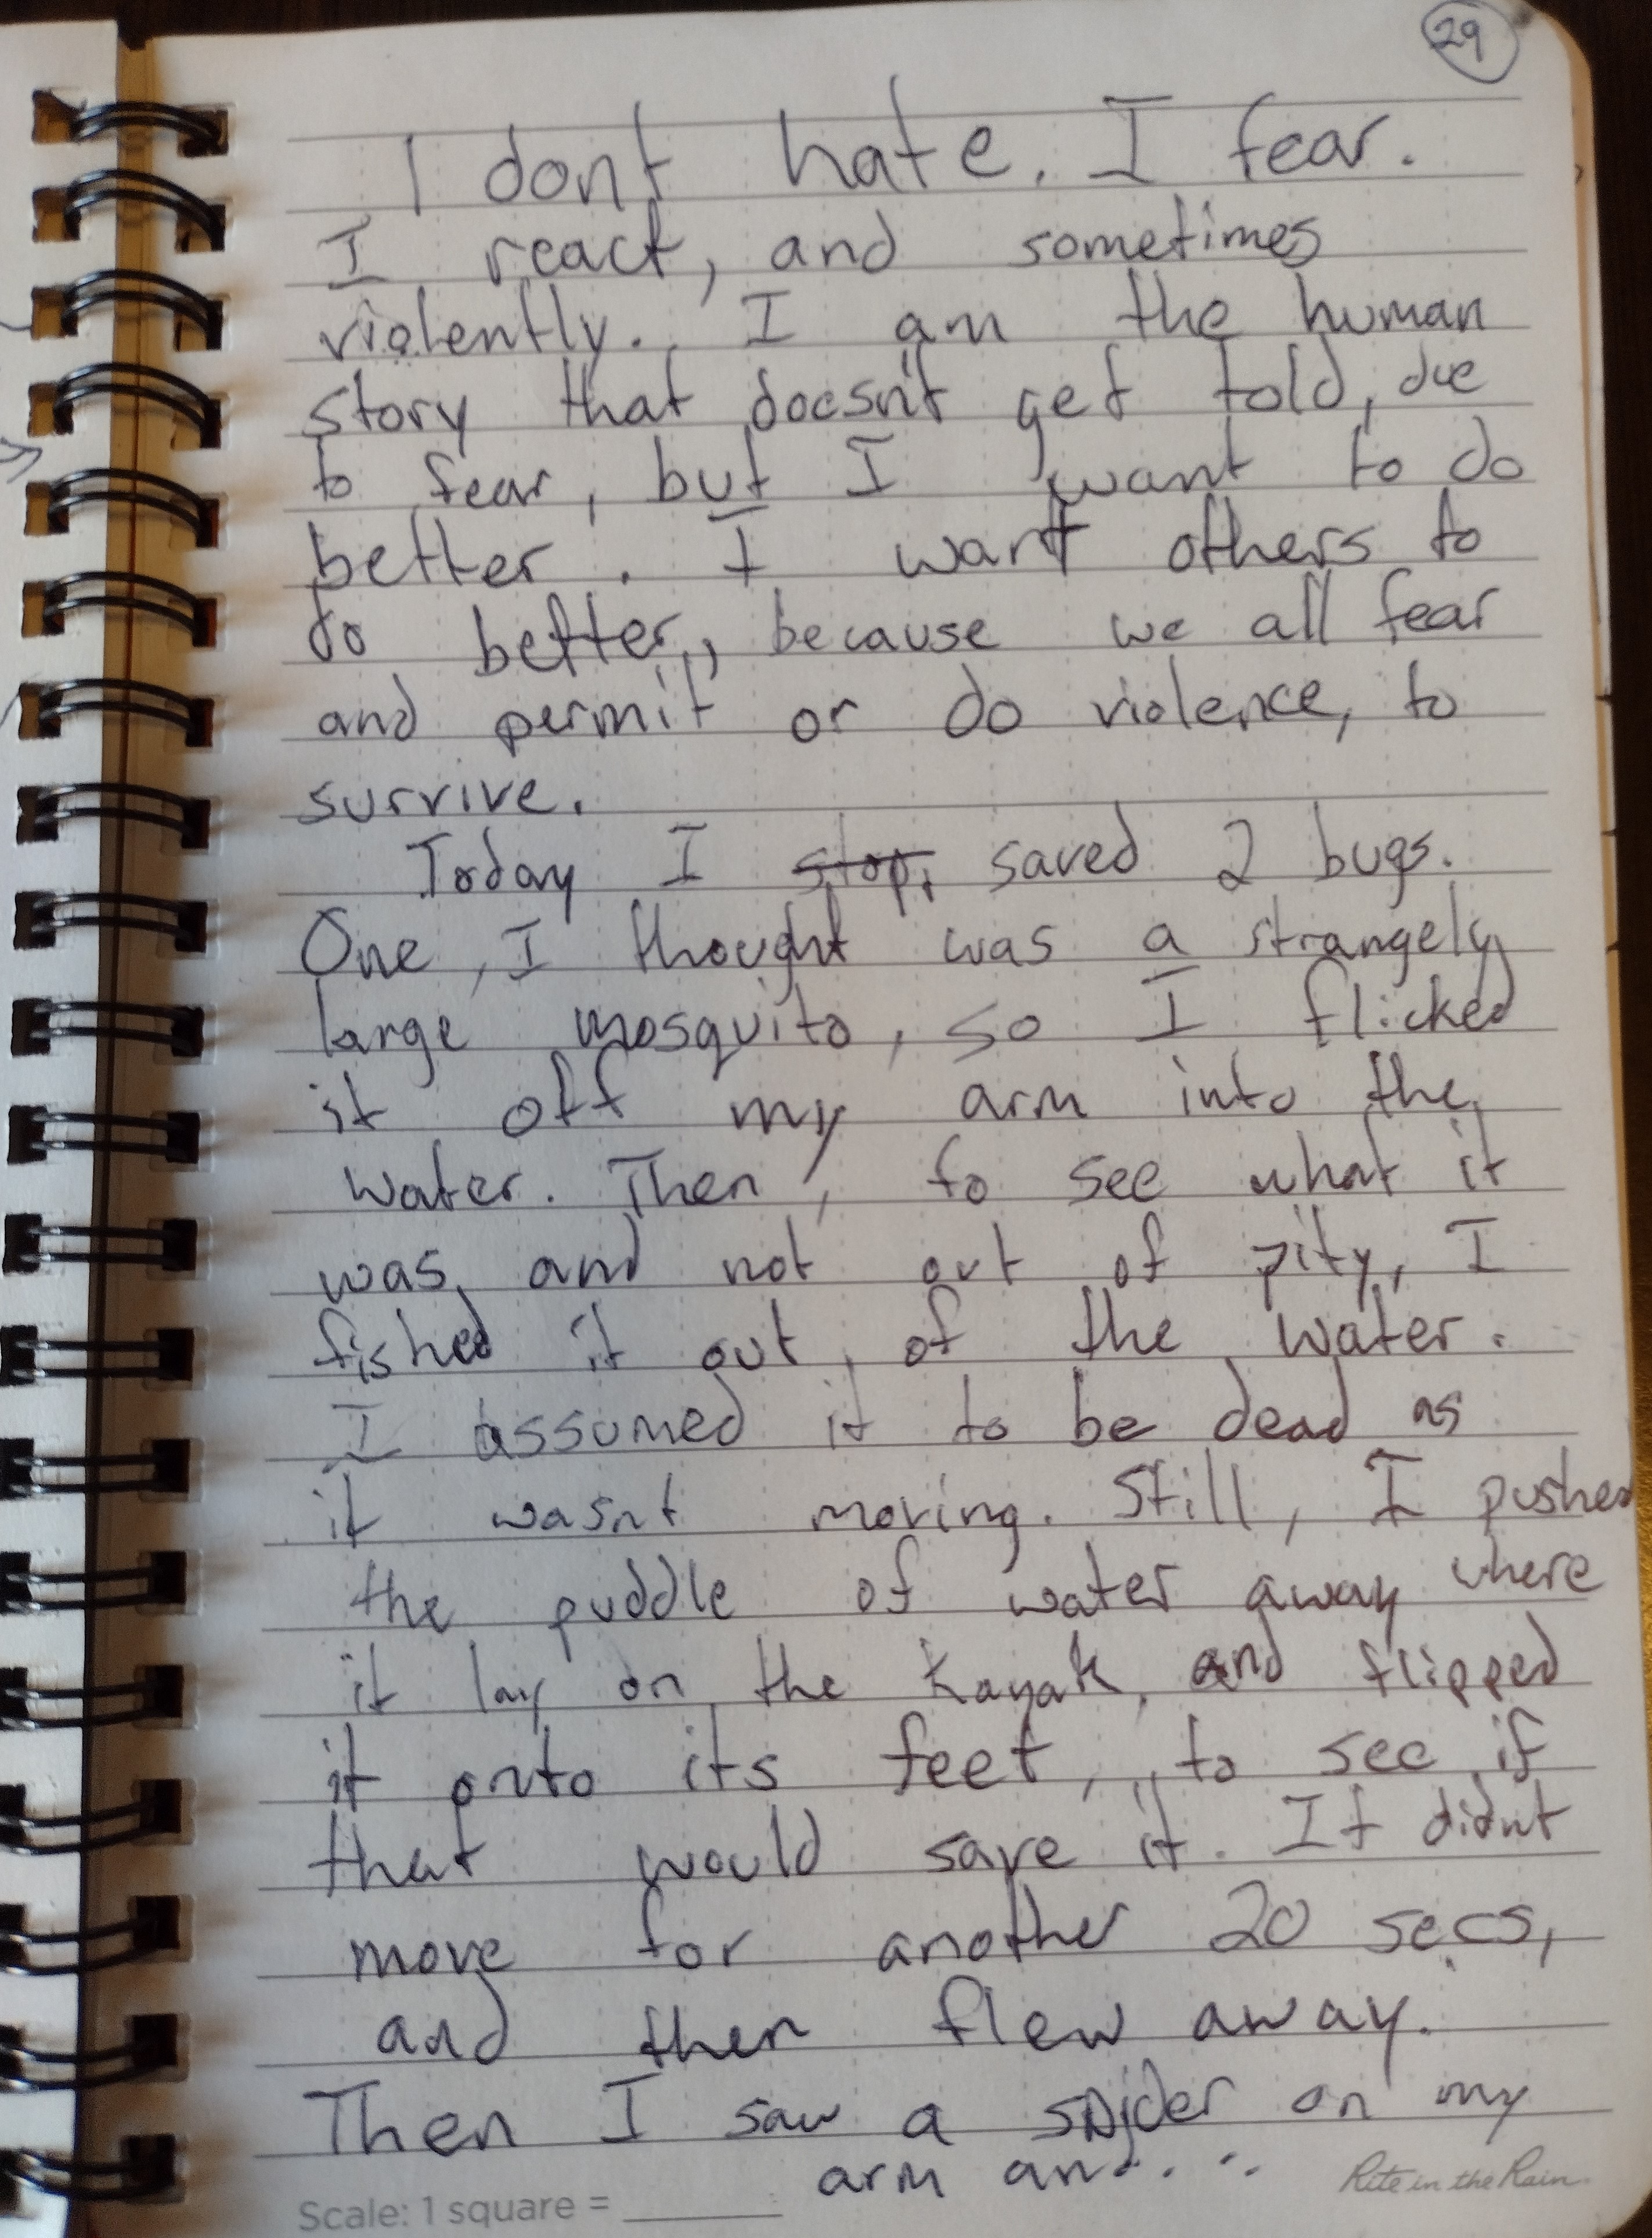 29
I dont hate. I fear.
I react, and sometimes
violently. I am the human
story that doesn't get told, due
to fear, but I want to do
better. I want others to
do better, because we all fear
and permit or do violence, to
survive.
Today I stop, saved 2 bugs.
One, I thought was a strangely
large mosquito, so I flicked
it off my arm into the
water. Then, to see what it
was, and not out of pity, I
fished it out of the water.
I assumed it to be dead as
it wasnt moving. Still, I pushed
the puddle of water away where
it lay on the kayak, and flipped
it onto its feet, to see if
that would save it. It didnt
move for another 20 secs,
and then flew away.
Then I saw a spider on my
arm and...
Scale: 1 square = ______
Rite in the Rain